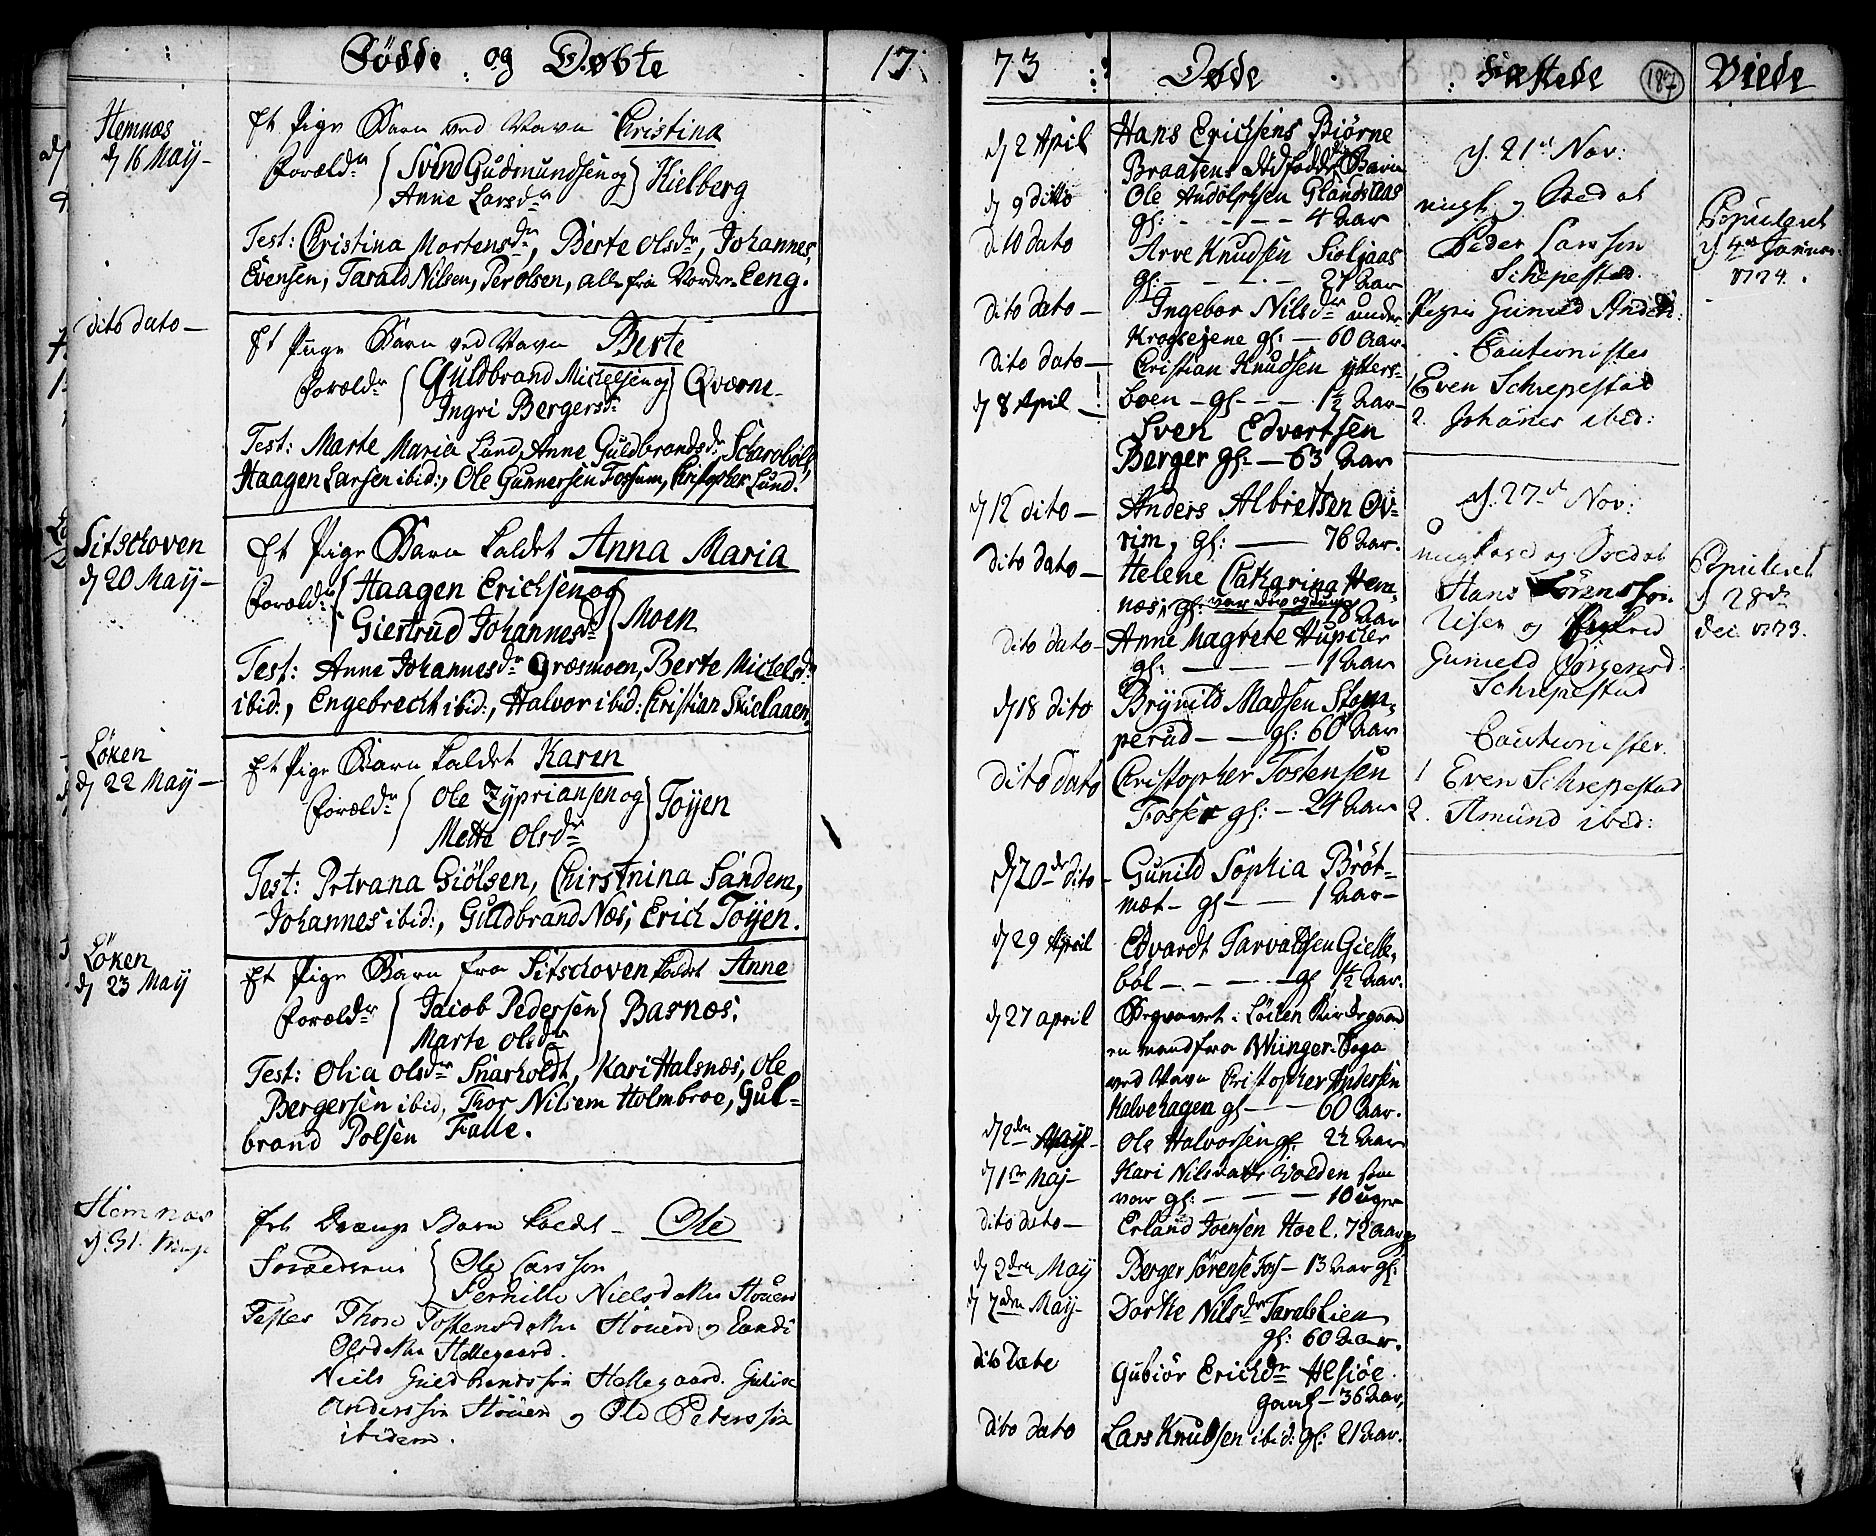 Fødde og Døbte 17
Hemnæs
d 16 May
Et Pige Barn ved Navn Christina
Foreldr Svend Gudmundsen og
Anne Larsdr
Kielberg
Test: Christina Mortensdr, Berte Olsdr, Johannes
Evensen, Tarald Nilsen, Per Olsen, alle fra Nordre Eeng.
dito dato
Et Pige Barn ved Navn Berte
Foreldr Guldbrand Michelsen og
Ingri Bergersdr
Qværne
Test: Marte Maria Lund, Anne Guldbrandsdr
Haagen Larsen ibid:, Ole Gunnersen Fossum, Christopher Lund.
Sitschoven
d 20 May
Et Pige Barn kaldet Anna Maria
Foreldr Haagen Erichsen og
Giertrud Johannesdr
Moen
Test: Anne Johannesdr Græsmoen, Berte Michelsdr
ibid:, Engebrecht ibid:, Halvor ibid: Christian Skielaaen
Løken
d 22 May
Et Pige Barn kaldet Karen
Foreldr Ole Zypriansen og
Mette Olsdr
Toyen
Test: Petrana Giølsen, Chirstnina Sandem,
Johannes ibid:, Guldbrand Næs, Erich Toyen.
Løken
d 23 May
Et Pige Barn fra Sitschoven kaldet Anne
Foreldr Jacob Pedersen
Marte Olsdr
Basnæs.
Test: Olia Olsdr Snarholdt, Kari Halsnæs, Ole
Bergersen ibid, Thor Nilsen Holmbroe, Gul-
brand Polsen Falle.
Hemnæs
d. 31. May
Et Drenge Barn kaldet Ole
Forældrene Ole Larssøn
Pernille Nielsdatter Stouen
Testes Thore Tostensdatter Stouen og
Olsdatter Hellegaard.
Niels Guldbrandssøn Hellegaard.
Anderssøn Stouen og Ole Peterssøn
ibidem.
73 Døde
d 2 April Hans Erichsens Biørne
Braatens dødfødde Barn
d 9 ditto Ole Andolphsen
gl: 4 Aar
dito dato Arve Knudsen Siolaas
gl: 27 Aar
dito dato Ingebor Nilsdr under
Krogseyene gl: 60 Aar
dito dato Christian Knudsen ytters-
boen gl 1½ Aar
d 8 April Sven Edvartsen
Berger gl: 63 Aar
d 12 dito Anders Albretsen Ov-
rim, gl: 76 Aar
dito dato Helene Catharina Hem-
næs, gl: var døv og dum 18 Aar
dito dato Anne Magrete
gl: 1 Aar
d 18 dito Brynild Madsen Stom-
perud gl: 60 Aar
dito dato Christopher Tostensen
Fosser gl: 24 Aar
d 20de dito Gunild Sophia Brøt-
mæt gl 1 Aar
d 29 April Edvardt Tarvaldsen Gielle-
bøl gl 1½ Aar.
d 27 april Begravet i Løken Kirkegaard
en mand fra Winger Sogn
ved Navn Christopher Andersen
Kalvehagen gl 60 Aar.
d 2den May Ole Halvorsen gl 2½ Aar
d 1ste May Kari Nilsdatter Volden som
var gl: 10 uger
dito dato Erland Joensen Hoel. 72 Aar
d 2den May Berger Sørense Fos 13 Aar gl:
d 7den May Dorthe Nilsdr Taralslien
gl: 60 Aar.
dito Date Gubiør Erichdr Alsiøe
36 Aar,
dito dato Lars Knudsen ibid: gl: 21 Aar.
Fæstede 187
d. 21de Nov:
og
Peder Larssøn
Schepestad.
Pigen Gunild
Cautionister
1 Even Schrepestad
2. Johanes ibid:
d. 27de Nov:
og
Hans Sørenssøn
Riser og
Gunild Jørgensd.
Schrepestad
Cautionister.
1 Even Schrepestad
2. Amund ibid:
Viede
Copuleret
d. 4de Januar
1774.
Copuleret
d 28de
Dec. 1773.